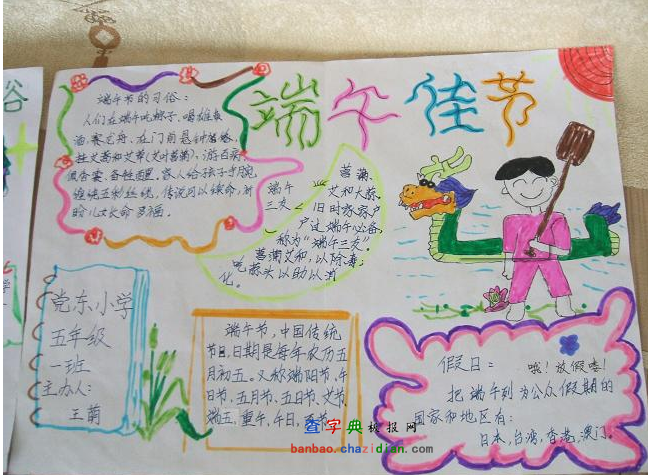 端午佳节
端午节的习俗：
人们在端午吃粽子，喝雄黄
酒，赛龙舟，在门前悬钟馗像，
挂艾蒿和艾草(艾叶菖蒲)，游百病，
佩香囊，备牲醴。家人给孩子手腕
缠绕五彩丝线，传说可以续命，祈
盼儿女长命多福。
端午
三友
菖蒲、
艾和大蒜，
旧时家家户
户过端午必备，
称为“端午三友”
菖蒲艾和，以除毒，
吃蒜头以助以消
化。
党东小学
五年级
一班
主办人：
王萌
端午节，中国传统
节日，日期是每年农历五
月初五。又称端阳节，午
日节，五月节，五日节，艾节，
端五，重午，午日，夏节。
假日：
哦！放假喽！
把端午列为公众假期的
国家和地区有：
日本，台湾，香港，澳门。
俗
查字典板报网
banbao.chazidian.com